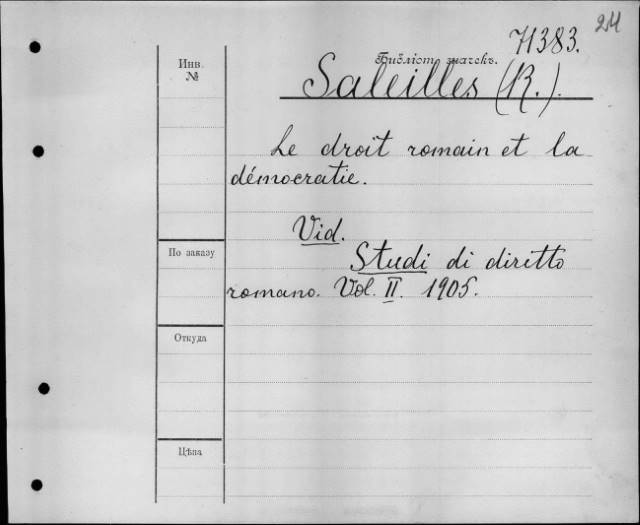 214
71383.
Библіот. значекъ.
Инв.
№
Saleilles (R.).
Le droit romain et la
démocratie.
Vid.
По заказу
Studi di diritto
romano. Vol. II. 1905.
Откуда
Цѣна